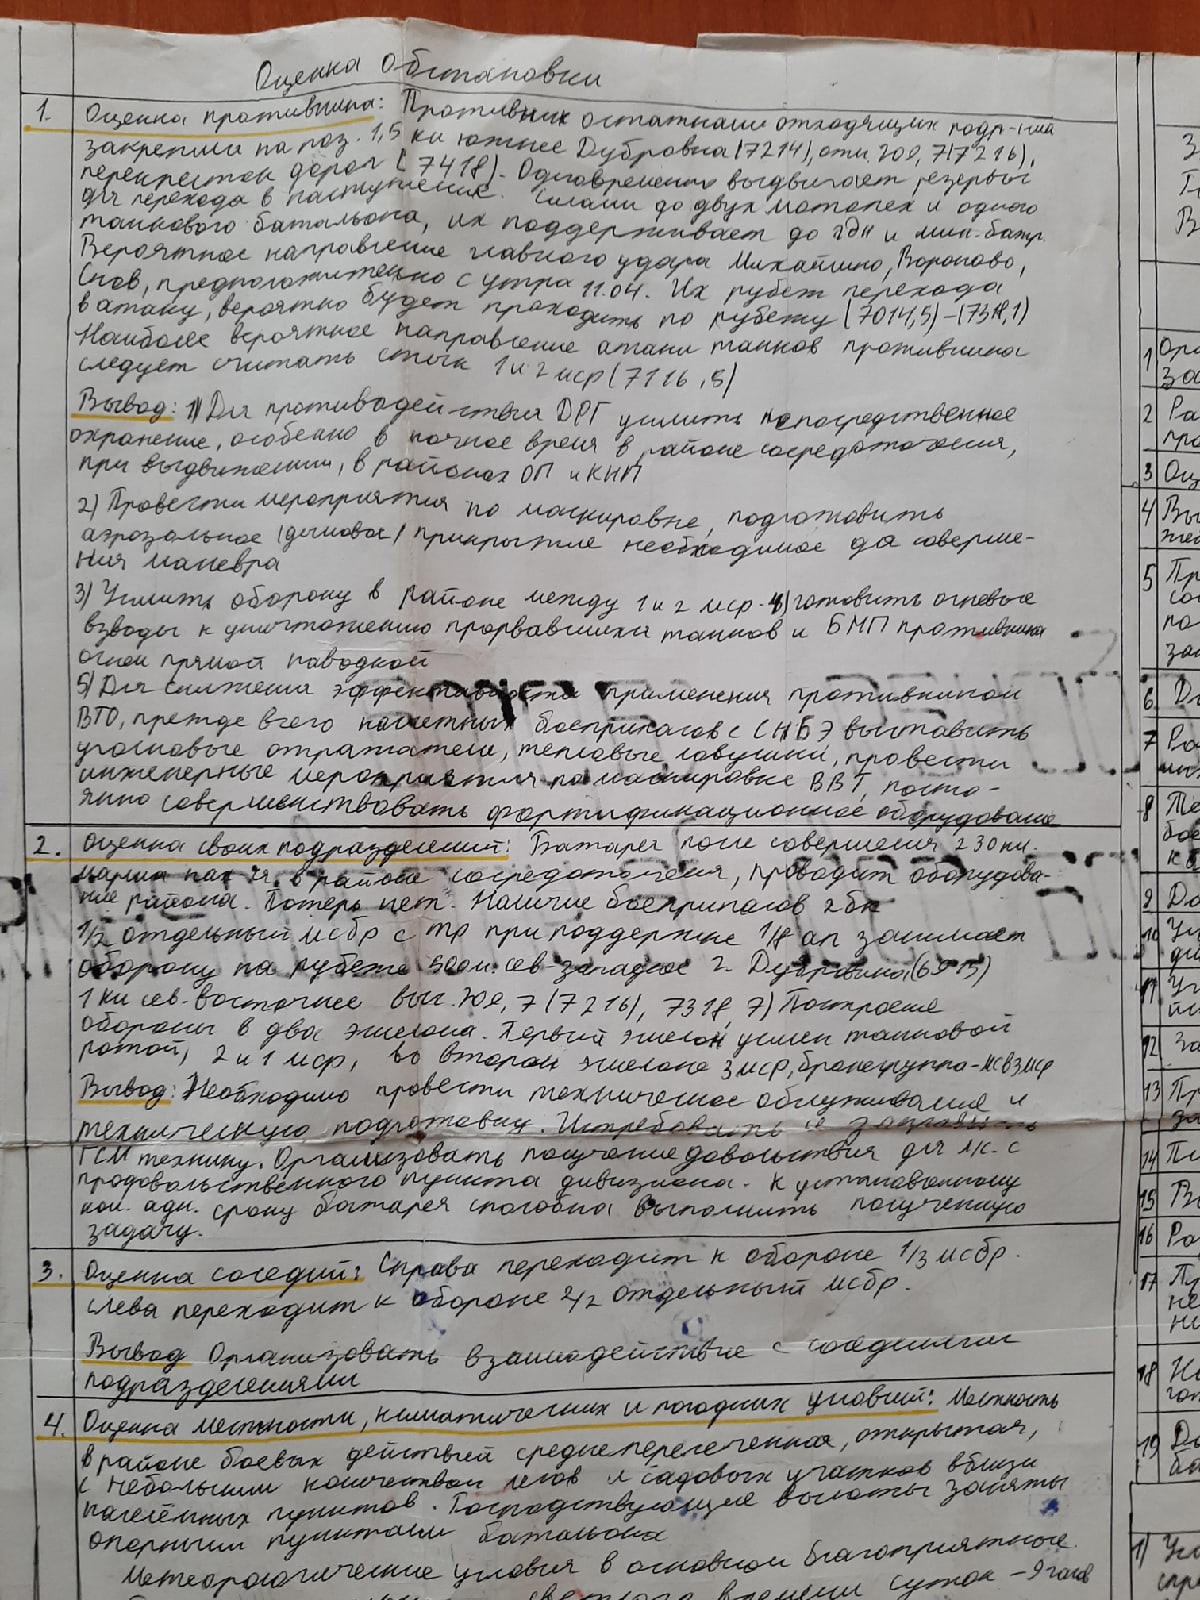 Оценка обстановки
1. Оценка противника: Противник остатками отходящих подр-ния
закрепил на поз. 1,5 км южнее Дубровка (7214), отм. 202,7 (7216),
перекресток дорог (7418). Одновременно выдвигает резервы
для перехода в наступление. Силами до двух мотопех и одного
танкового батальона, их поддерживает до 2дн и мин. батр.
Вероятное направление главного удара Михайлино, Вороново,
Снов, предположительно с утра 11.04. Их рубеж перехода
в атаку, вероятно будет проходить по рубежу (7014,5) - (7318,1)
Наиболее вероятное направление атаки танков противника
следует считать стык 1 и 2 мср (7116,5)
Вывод: 1) Для противодействия ДРГ усилить непосредственное
охранение, особенно в ночное время в районе сосредоточения,
при выдвижении, в районах ОП и КНП
2) Провести мероприятия по маскировке, подготовить
аэрозольное (дымовое) прикрытие необходимое для соверше-
ния маневра
3) Усилить оборону в районе между 1 и 2 мср. 4) готовить огневые
взводы к уничтожению прорвавшихся танков и БМП противника
огнём прямой наводкой
5) Для снижения эффективности применения противником
ВТО, прежде всего кассетных боеприпасов с СНБЭ выставить
уголковые отражатели, тепловые ловушки, провести
инженерные мероприятия по маскировке ВВТ, посто-
янно совершенствовать фортификационное оборудование
2. Оценка своих подразделений: Батарея после совершения 230 км.
марша находится в районе сосредоточения, проводит оборудова-
ние района. Потерь нет. Наличие боеприпасов 2 бк
1/2 отдельный мсбр с тр при поддержке 1/8 ап занимает
оборону на рубеже 500м. сев-западнее г. Дубравина (6915)
1 км сев. восточнее выс. 202,7 (7216), 7318,7) Построение
обороны в два эшелона. Первый эшелон усилен танковой
ротой, 2 и 1 мср, во втором эшелоне 3 мср, бронегруппа - мсв3мср
Вывод: Необходимо провести техническое обслуживание и
техническую подготовку. Истребовать и заправить
ГСМ технику. Организовать получение довольствия для л/с. с
продовольственного пункта дивизиона. К установленному
ком. адн. сроку батарея способна выполнить полученную
задачу.
3. Оценка соседий: Справа переходит к обороне 1/3 мсбр.
слева переходит к обороне 2/2 отдельный мсбр.
Вывод Организовать взаимодействие с соседними
подразделениями
4. Оценка местности, климатических и погодных условий: Местность
в районе боевых действий среднепересеченная, открытая,
с небольшим количеством лесов и садовых участков вблизи
населённых пунктов. Господствующие высоты заняты
опорными пунктами батальона
Метеорологические условия в основном благоприятные.
светлого времени суток - 9 часов
1
2
3
4
5
6
7
8
9
10
11
12
13
14
15
16
17
18
19
1)